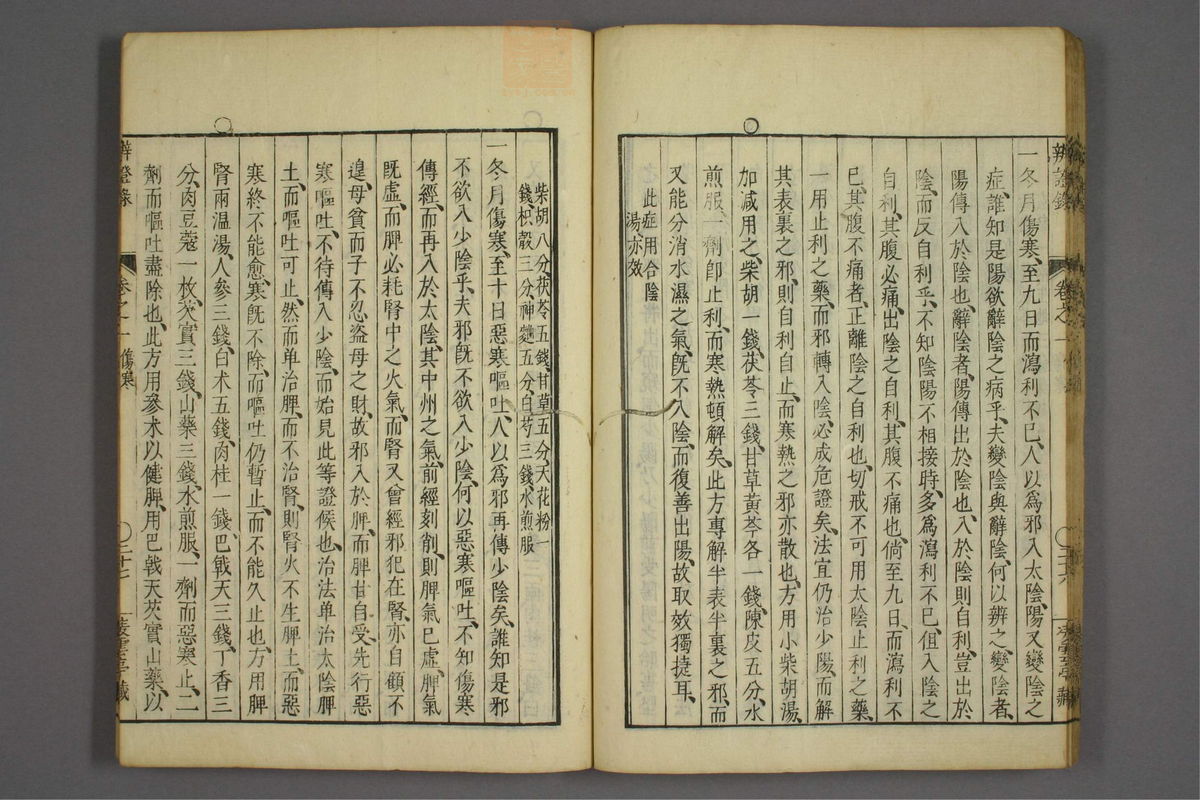 一冬月傷寒、至九日而瀉利不已、人以爲邪入太陰、陽又變陰之
症、誰知是陽欲辭陰之病乎、夫變陰與辭陰、何以辨之、變陰者、
陽傳入於陰也、辭陰者、陽傳出於陰也、入於陰則自利、豈出於
陰、而反自利乎、不知陰陽不相接時、多爲瀉利不已、但入陰之
自利、其腹必痛、出陰之自利、其腹不痛也、倘至九日、而瀉利不
已、其腹不痛者、正離陰之自利也、切戒不可用太陰止利之藥、
一用止利之藥、而邪轉入陰、必成危證矣、法宜仍治少陽、而解
其表裏之邪、則自利自止、而寒熱之邪亦散也、方用小柴胡湯、
加減用之、柴胡一錢、茯苓三錢、甘草黄芩各一錢、陳皮五分、水
煎服、一劑卽止利、而寒熱頓解矣、此方專解半表半裏之邪、而
又能分消水濕之氣、旣不入陰、而復善出陽、故取效獨捷耳、
此症用合陰
湯、亦效
辨證錄
卷之一
三十六
柴胡八分、茯苓五錢、甘草五分、天花粉一
錢、枳殼三分、神麯五分、白芍三錢、水煎服
一冬月傷寒、至十日惡寒嘔吐、人以爲邪再傳少陰矣、誰知是邪
不欲入少陰乎、夫邪旣不欲入少陰、何以惡寒嘔吐、不知傷寒
傳經、而再入於太陰、其中州之氣、前經刻削、則脾氣已虛、脾氣
旣虛、而脾必耗腎中之火氣、而腎又曾經邪犯、在腎、亦自顧不
遑、母貧而子不忍盜母之財、故邪入於脾、而脾甘自受、先行惡
寒嘔吐、不待傳入少陰、而始見此等證候也、治法单治太陰脾
土、而嘔吐可止、然而单治脾、而不治腎、則腎火不生脾土、而惡
寒終不能愈、寒旣不除、而嘔吐仍暫止、而不能久止也、方用脾
腎兩温湯、人參三錢、白术五錢、肉桂一錢、巴戟天三錢、丁香三
分、肉豆蔻一枚、芡實三錢、山藥三錢、水煎服、一劑而惡寒止、二
劑而嘔吐盡除也、此方用參术以健脾、用巴戟天芡實山藥、以
辨證錄
卷之一 傷寒
三十七